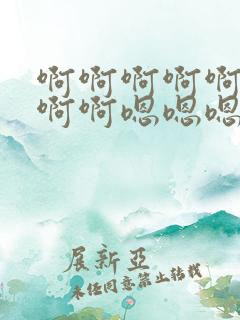 啊啊啊啊啊
啊啊嗯嗯嗯
展新亞
未经同意禁止转载